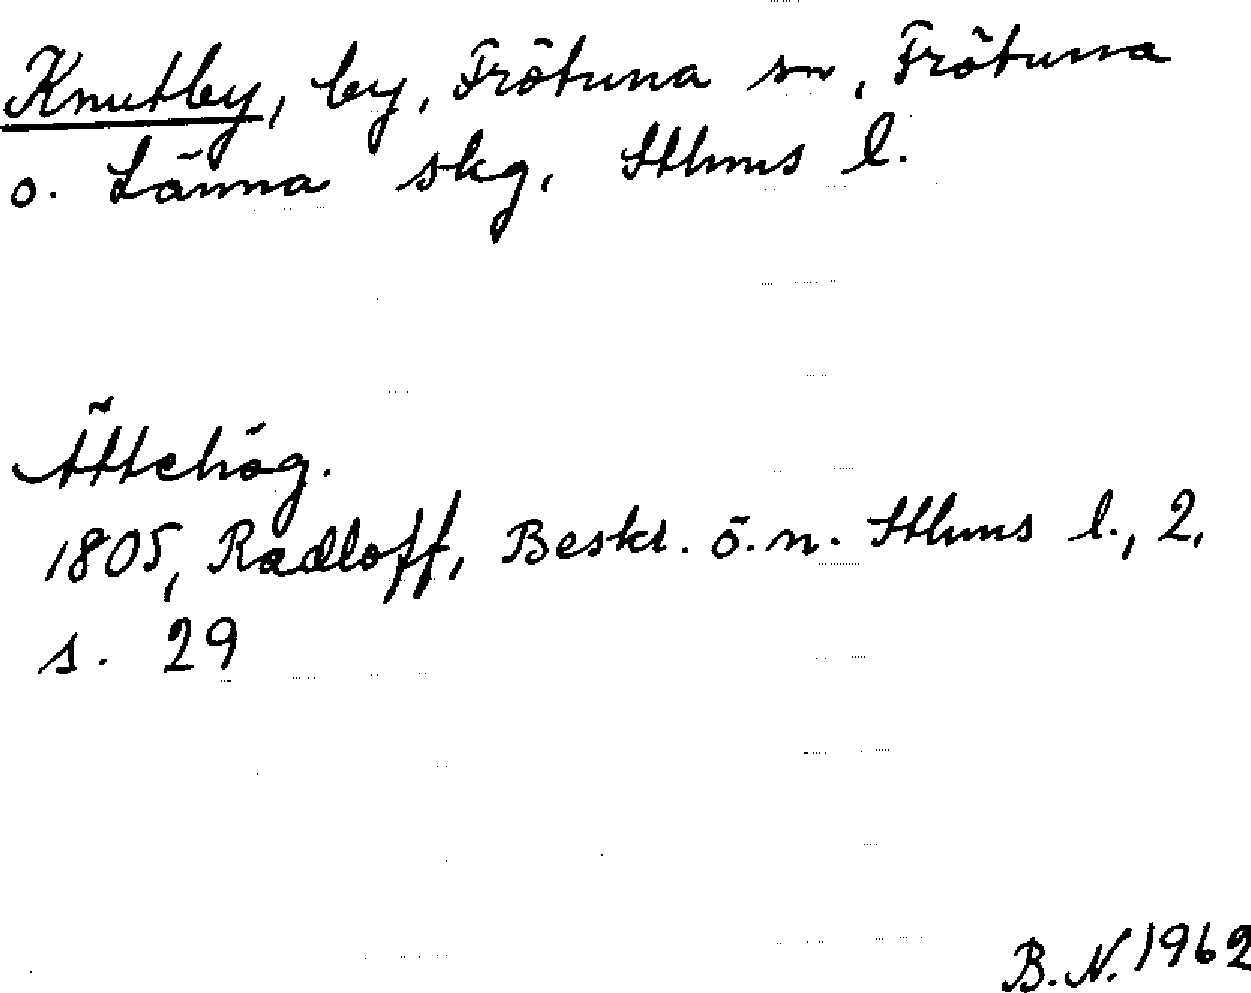 Knutby, by, Frötuna sn, Frötuna
o. Länna skg, Sthms l.
Ättehög.
1805, Radloff, Beskr. ö. n. Sthms l., 2,
s. 29
B.N. 1962